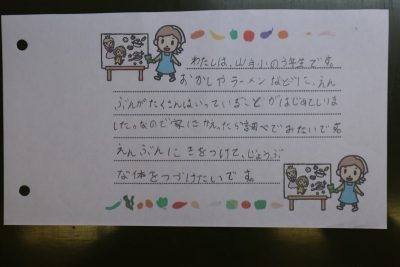 わたしは、山白小の3年生です。
おかしやラーメンなどに、えん
ぶんがたくさんはいっていることがはじめていしま
した。なので家にかえったら調べてみたいです。
えんぶんにきをつけて、じょうぶ
な体をつづけたいです。